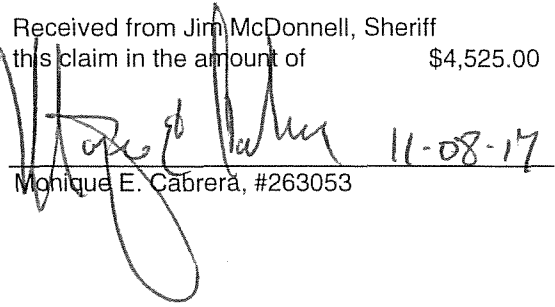 Received from Jim McDonnell, Sheriff
this claim in the amount of $4,525.00
11-08-17
Monique E. Cabrera, #263053